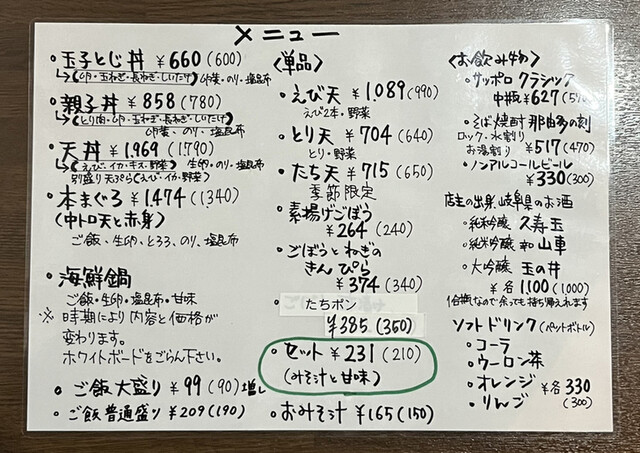 メニュー
・玉子とじ丼 ¥660(600)
→(卵・玉ねぎ・長ねぎ・しいたけ)
卵葉・のり・塩昆布
・親子丼 ¥858(780)
→(とり肉・卵・玉ねぎ・長ねぎ・しいたけ)
、のり、塩昆布
・天丼 ¥1,969(1790)
→(えび・イカ・キス・野菜) 生卵・のり・塩昆布
別盛り天ぷら(えび・イカ・野菜)
・本まぐろ ¥1,474(1340)
(中トロ天と赤身)
ご飯、生卵、とろろ、のり、塩昆布
・海鮮鍋
ご飯・生卵・塩昆布・甘味
※時期により内容と価格が
変わります。
ホワイトボードをごらん下さい。
・ご飯大盛り ¥99(90)増し
・ご飯普通盛り ¥209(190)
〈単品〉
・えび天 ¥1,089(990)
えび2本・野菜
・とり天 ¥704(640)
とり・野菜
・たち天 ¥715(650)
季節限定
・素揚げごぼう
¥264(240)
・ごぼうとねぎの
きんぴら
¥374(340)
・たちポン
¥385(350)
・セット ¥231(210)
(みそ汁と甘味)
・おみそ汁 ¥165(150)
〈お飲み物〉
・サッポロクラシック
中瓶¥627(570)
・そば焼酎 那由多の刻
ロック・水割り
お湯割り ¥517(470)
・ノンアルコールビール
¥330(300)
店主の出身、岐阜県のお酒
・純米吟醸 久寿玉
・純米吟醸 山車
・大吟醸 玉の井
¥各1,100(1,000)
1合瓶なので余っても持ち帰れます
ソフトドリンク(ペットボトル)
・コーラ
・ウーロン茶
・オレンジ ¥各330
・りんご (300)